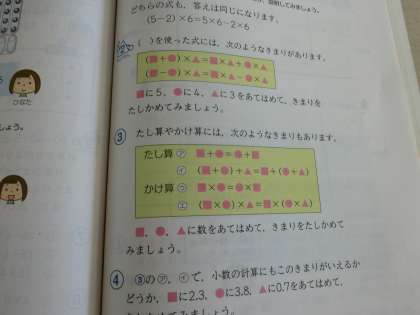 どちらの式も、答えは同じになります。
(5−2)×6=5×6−2×6
( )を使った式には、次のようなきまりがあります。
(■+●)×▲=■×▲+●×▲
(■−●)×▲=■×▲−●×▲
■に5、●に4、▲に3をあてはめて、きまりを
たしかめてみましょう。
ひなた
しょう。
③ たし算やかけ算には、次のようなきまりもあります。
たし算 ㋐ ■+●=●+■
㋑ (■+●)+▲=■+(●+▲)
かけ算 ㋒ ■×●=●×■
㋓ (■×●)×▲=■×(●×▲)
■、●、▲に数をあてはめて、きまりをたしかめて
みましょう。
④ ③の㋐、㋑で、小数の計算にもこのきまりがいえるか
どうか、■に2.3、●に3.8、▲に0.7をあてはめて、